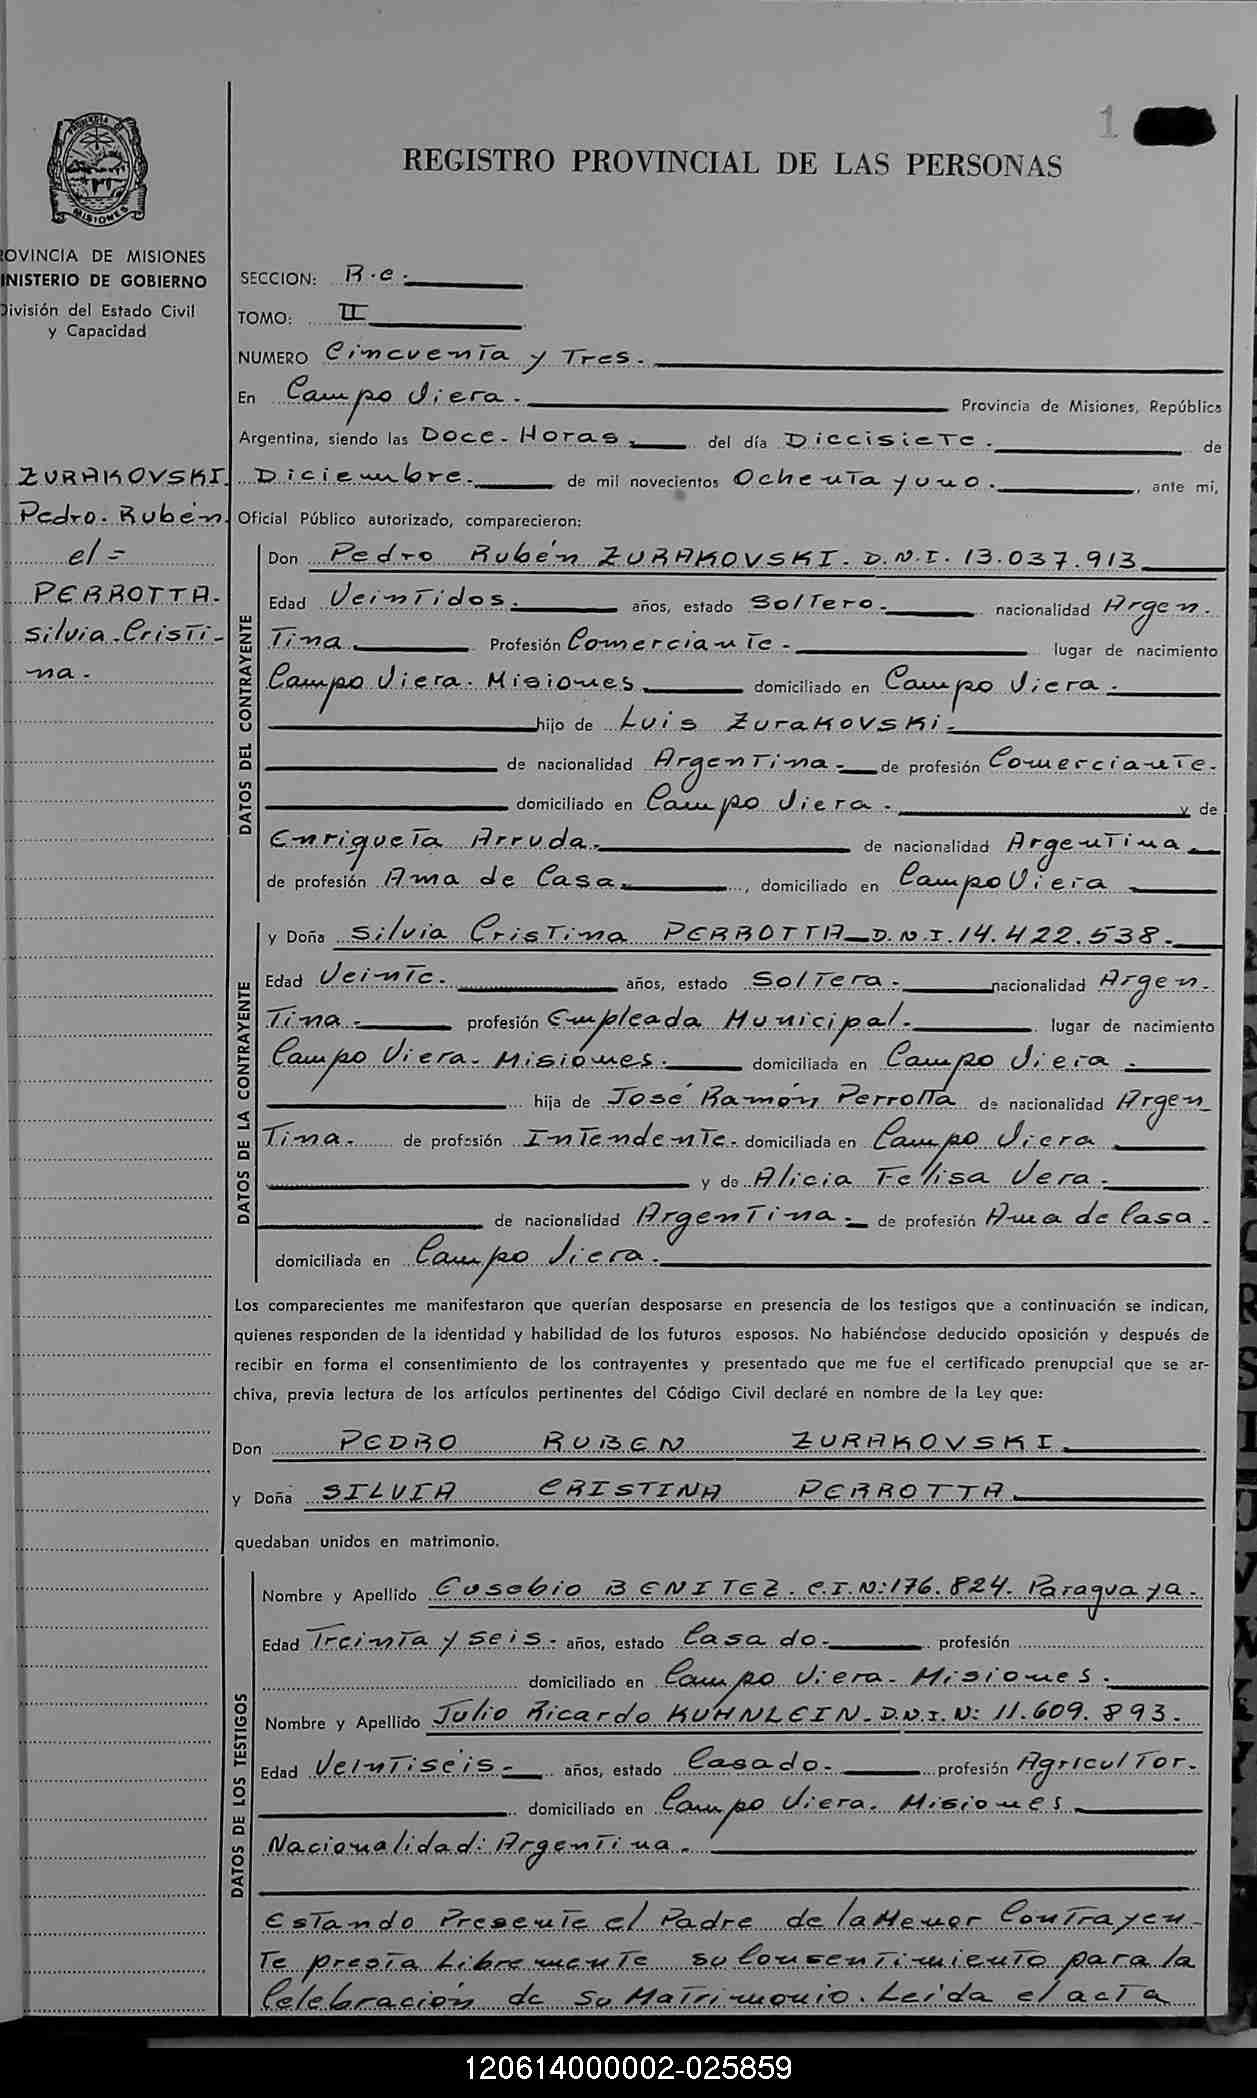 1
REGISTRO PROVINCIAL DE LAS PERSONAS
PROVINCIA DE
MISIONES
ROVINCIA DE MISIONES
INISTERIO DE GOBIERNO
División del Estado Civil
y Capacidad
SECCION: R.e.
TOMO: II
NUMERO Cincuenta y Tres.
En Campo Viera. Provincia de Misiones, República
Argentina, siendo las Doce. Horas. del día Diecisiete. de
Diciembre. de mil novecientos Ochenta y uno. , ante mí,
Oficial Público autorizado, comparecieron:
ZURAKOVSKI.
Pedro. Rubén
el =
PERROTTA.
Silvia. Cristi-
na.
DATOS DEL CONTRAYENTE
Don Pedro Rubén ZURAKOVSKI. D.N.I. 13.037.913
Edad Veintidos. años, estado Soltero. nacionalidad Argen.
Tina Profesión Comerciante. lugar de nacimiento
Campo Viera. Misiones domiciliado en Campo Viera.
hijo de Luis Zurakovski.
de nacionalidad Argentina. de profesión Comerciante.
domiciliado en Campo Viera. y de
Enriqueta Arruda. de nacionalidad Argentina
de profesión Ama de Casa. , domiciliado en Campo Viera
DATOS DE LA CONTRAYENTE
y Doña Silvia Cristina PERROTTA D.N.I. 14.422.538.
Edad Veinte. años, estado Soltera. nacionalidad Argen.
Tina. profesión Empleada Municipal. lugar de nacimiento
Campo Viera. Misiones. domiciliada en Campo Viera.
hija de José Ramón Perrotta de nacionalidad Argen
Tina. de profesión Intendente. domiciliada en Campo Viera
y de Alicia Felisa Vera.
de nacionalidad Argentina. de profesión Ama de Casa.
domiciliada en Campo Viera.
Los comparecientes me manifestaron que querían desposarse en presencia de los testigos que a continuación se indican,
quienes responden de la identidad y habilidad de los futuros esposos. No habiéndose deducido oposición y después de
recibir en forma el consentimiento de los contrayentes y presentado que me fue el certificado prenupcial que se ar-
chiva, previa lectura de los artículos pertinentes del Código Civil declaré en nombre de la Ley que:
Don PEDRO RUBEN ZURAKOVSKI.
y Doña SILVIA CRISTINA PERROTTA.
quedaban unidos en matrimonio.
DATOS DE LOS TESTIGOS
Nombre y Apellido Eusebio BENITEZ. C.I.N: 176.824. Paraguaya.
Edad Treinta y seis. años, estado Casado. profesión
domiciliado en Campo Viera. Misiones.
Nombre y Apellido Julio Ricardo KUHNLEIN. D.N.I. N: 11.609.893.
Edad Veintiséis. años, estado Casado. profesión Agricultor.
domiciliado en Campo Viera. Misiones
Nacionalidad: Argentina.
Estando Presente el Padre de la Menor Contrayen-
te presta Libremente su Consentimiento para la
Celebración de su Matrimonio. Leída el acta
120614000002-025859